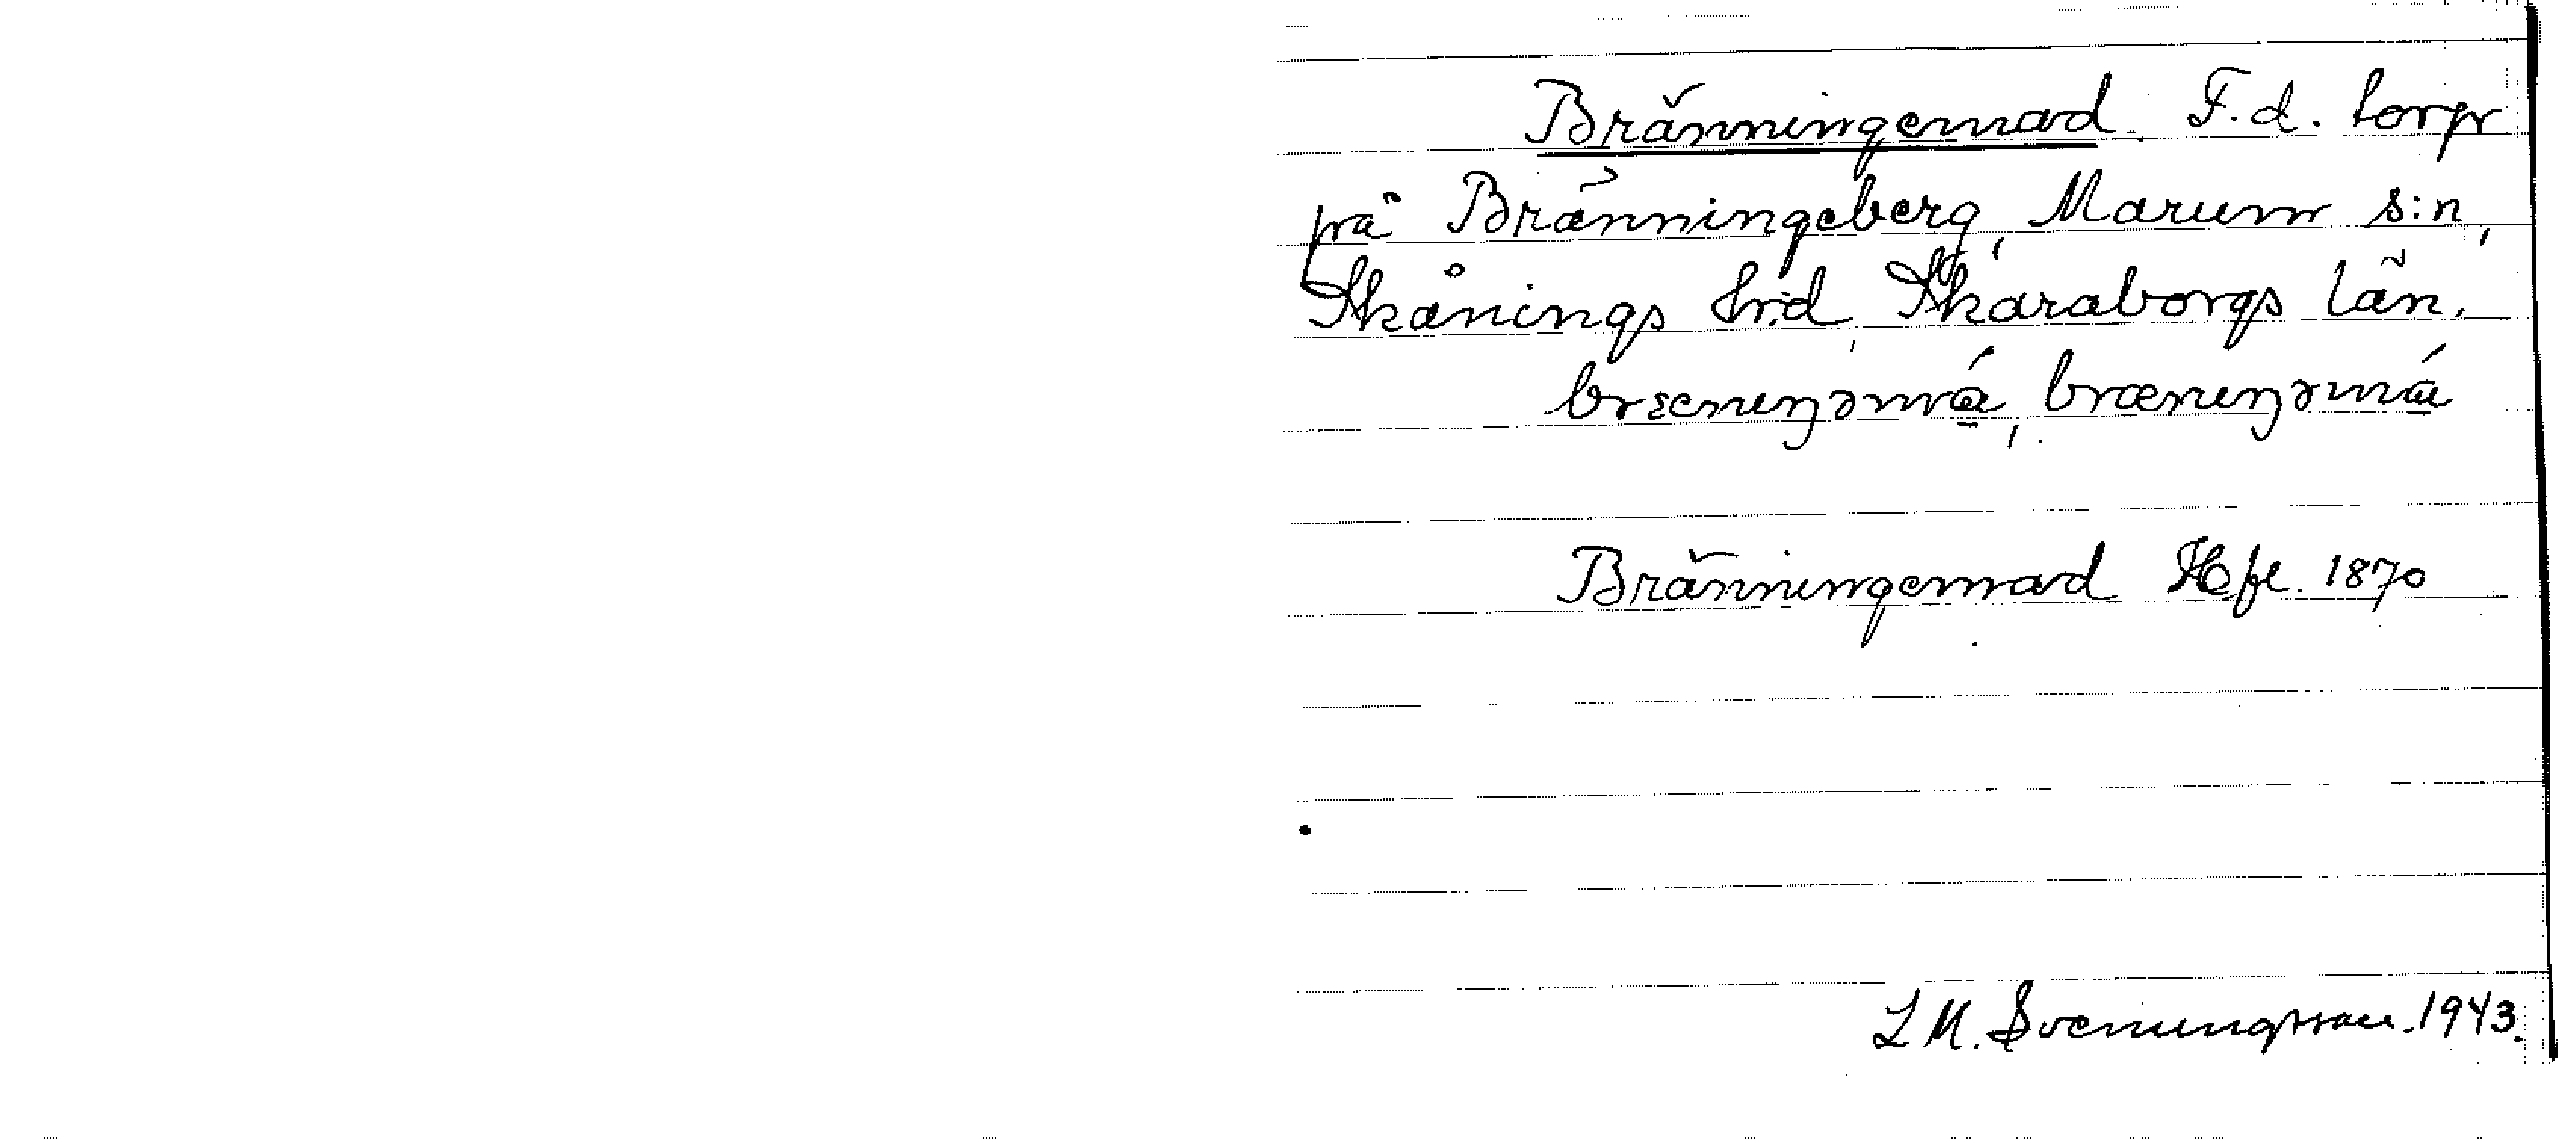 Bränningemad. F.d. torp
på Bränningeberg, Marum s:n,
Skånings h:d, Skaraborgs län.
bræneŋəmá, bræneŋəmá
Bränningemad Hfl. 1870
L M. Svenungsson. 1943.